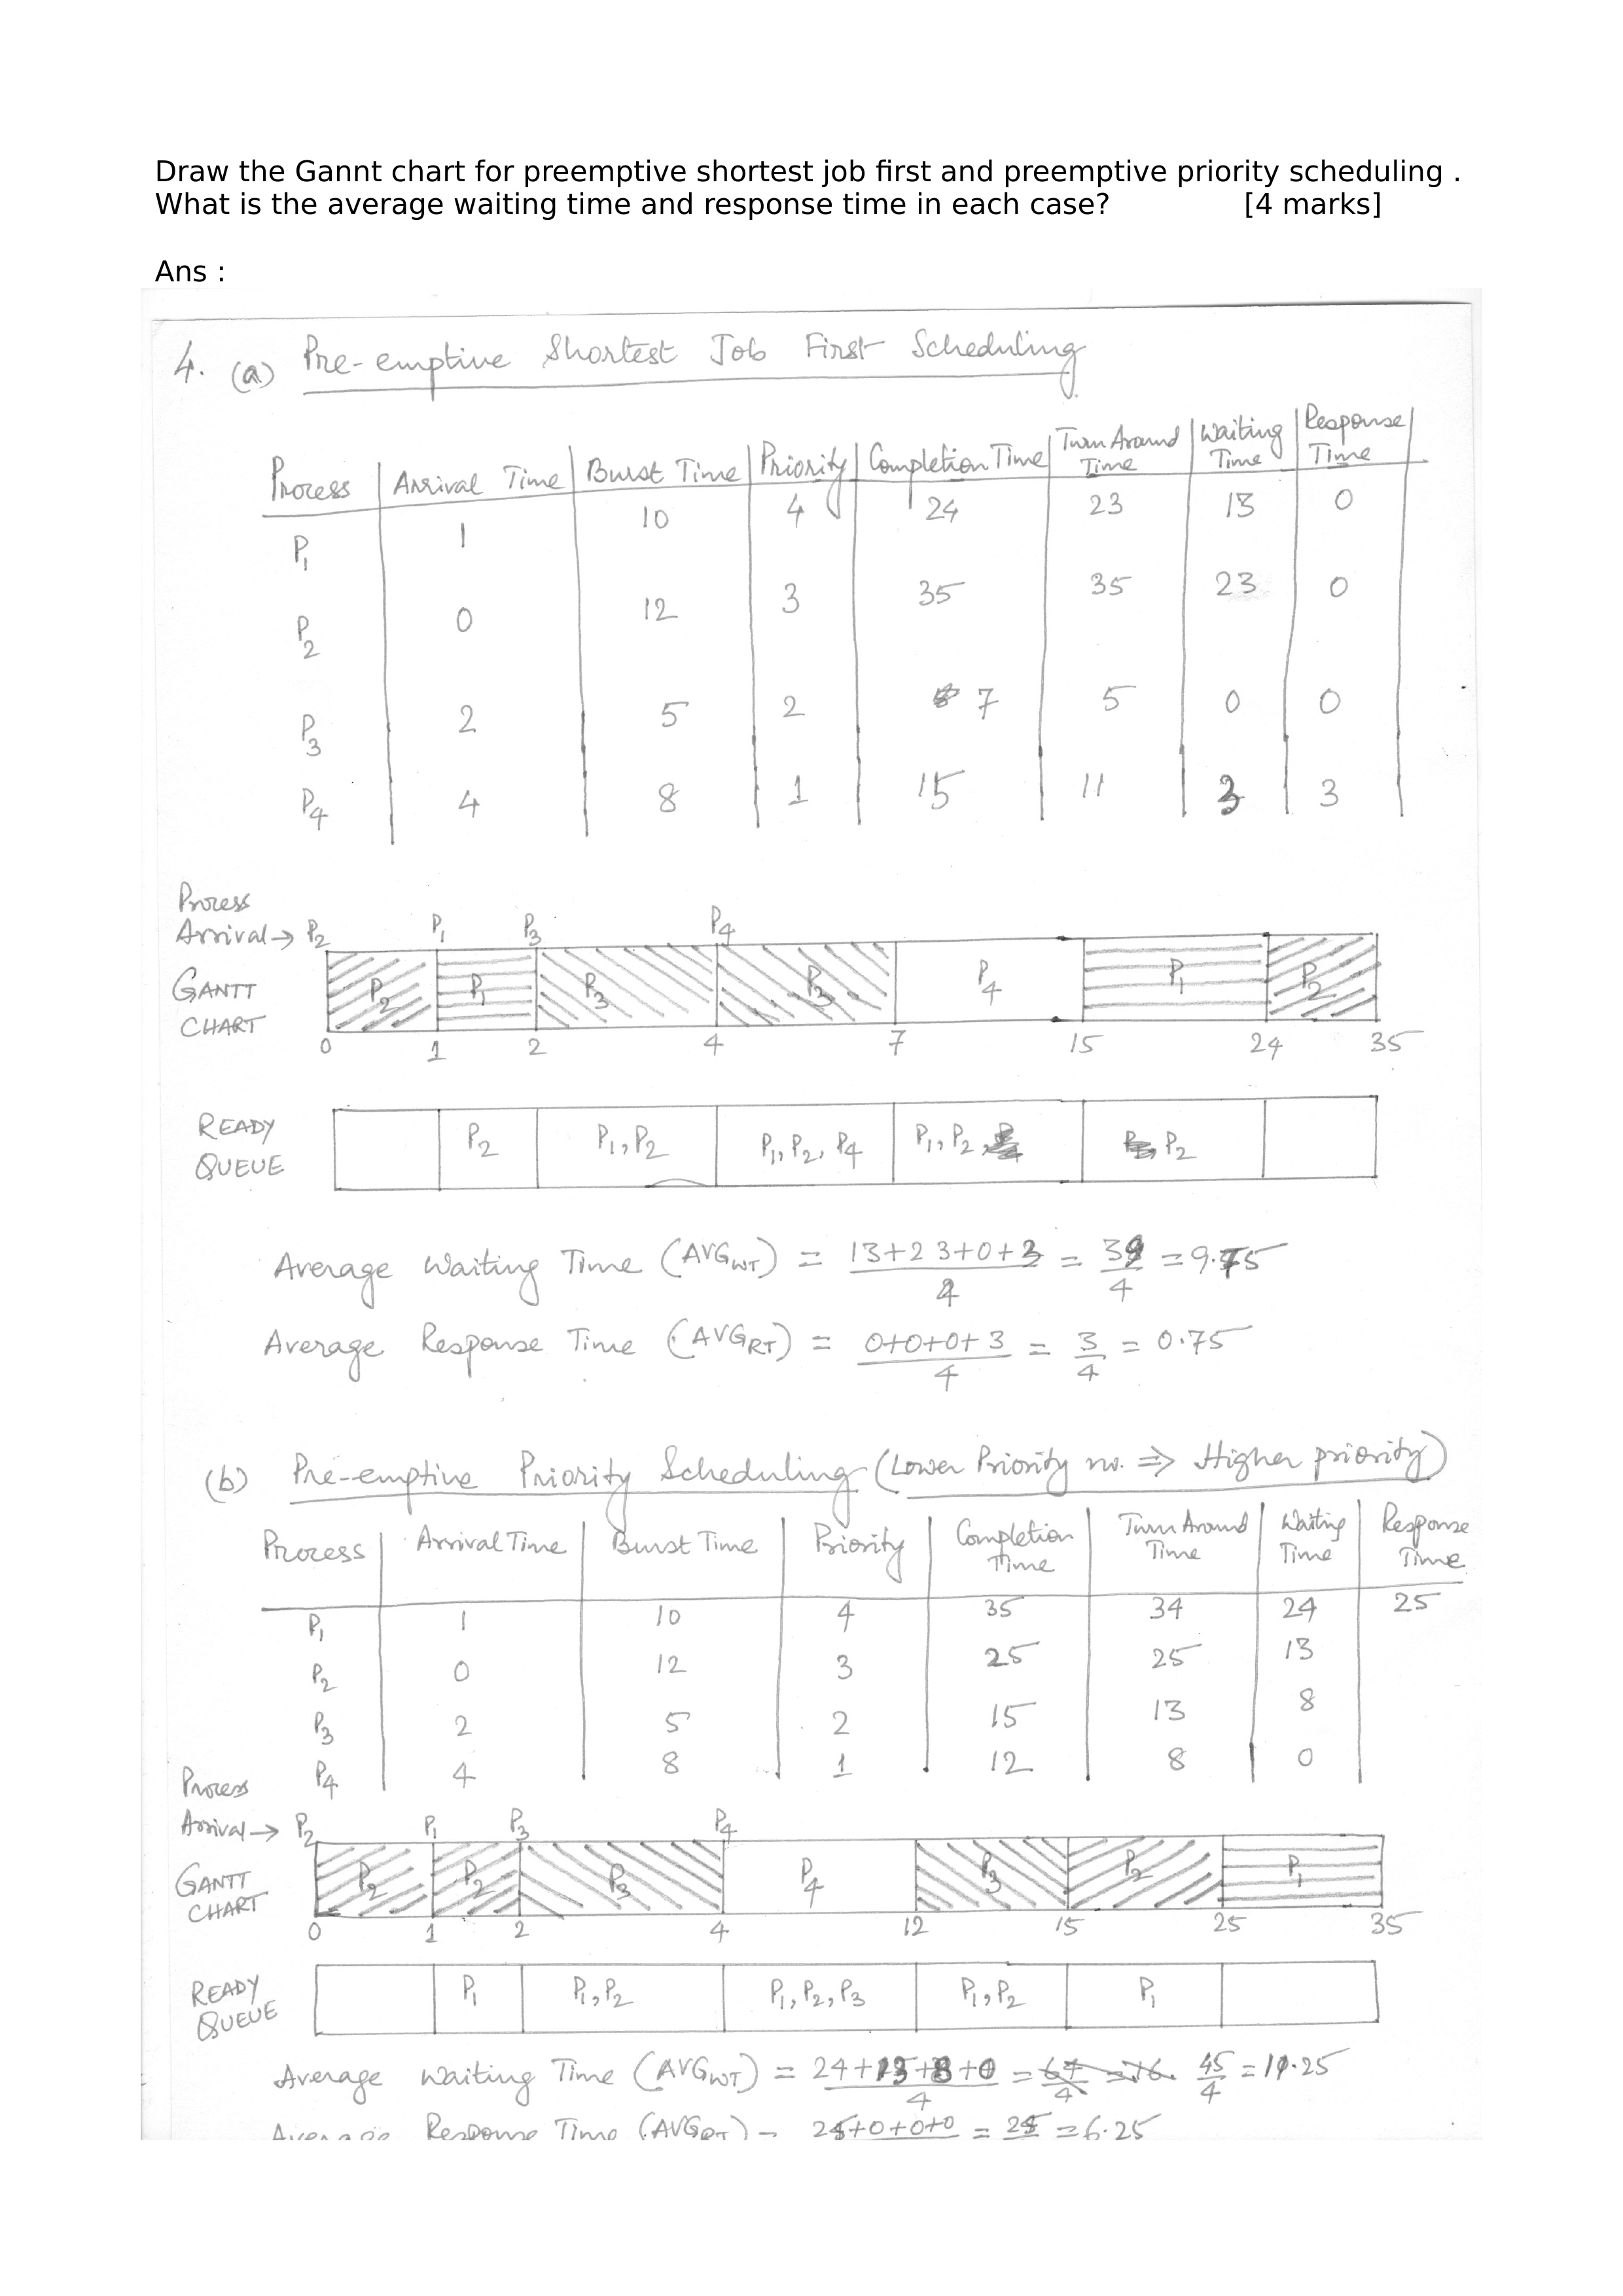 Draw the Gannt chart for preemptive shortest job first and preemptive priority scheduling .
What is the average waiting time and response time in each case? [4 marks]
Ans :
4. (a) Pre-emptive Shortest Job First Scheduling
Process Arrival Time Burst Time Priority Completion Time Turn Around Time Waiting Time Response Time
P1 1 10 4 24 23 13 0
P2 0 12 3 35 35 23 0
P3 2 5 2 7 5 0 0
P4 4 8 1 15 11 3 3
Process
Arrival → P2 P1 P3 P4
GANTT CHART P2 P1 P3 P3 P4 P1 P2
0 1 2 4 7 15 24 35
READY QUEUE P2 P1, P2 P1, P2, P4 P1, P2 P2
Average Waiting Time (AVGWT) = 13+23+0+3 / 4 = 39 / 4 = 9.75
Average Response Time (AVGRT) = 0+0+0+3 / 4 = 3 / 4 = 0.75
(b) Pre-emptive Priority Scheduling (Lower Priority no. ⇒ Higher priority)
Process Arrival Time Burst Time Priority Completion Time Turn Around Time Waiting Time Response Time
P1 1 10 4 35 34 24 25
P2 0 12 3 25 25 13
P3 2 5 2 15 13 8
P4 4 8 1 12 8 0
Process
Arrival → P2 P1 P3 P4
GANTT CHART P2 P2 P3 P4 P3 P2 P1
0 1 2 4 12 15 25 35
READY QUEUE P1 P1, P2 P1, P2, P3 P1, P2 P1
Average Waiting Time (AVGWT) = 24+13+8+0 / 4 = 45 / 4 = 11.25
Average Response Time (AVGRT) = 25+0+0+0 = 25 = 6.25